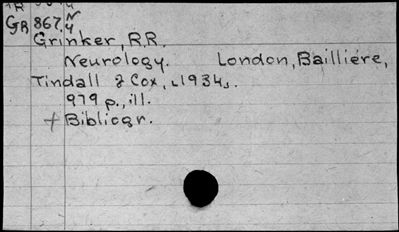 GR 867.N
4
Grinker, R.R.
Neurology. London, Baillière,
Tindall & Cox, [1934].
979 p., ill.
+ Bibliogr.